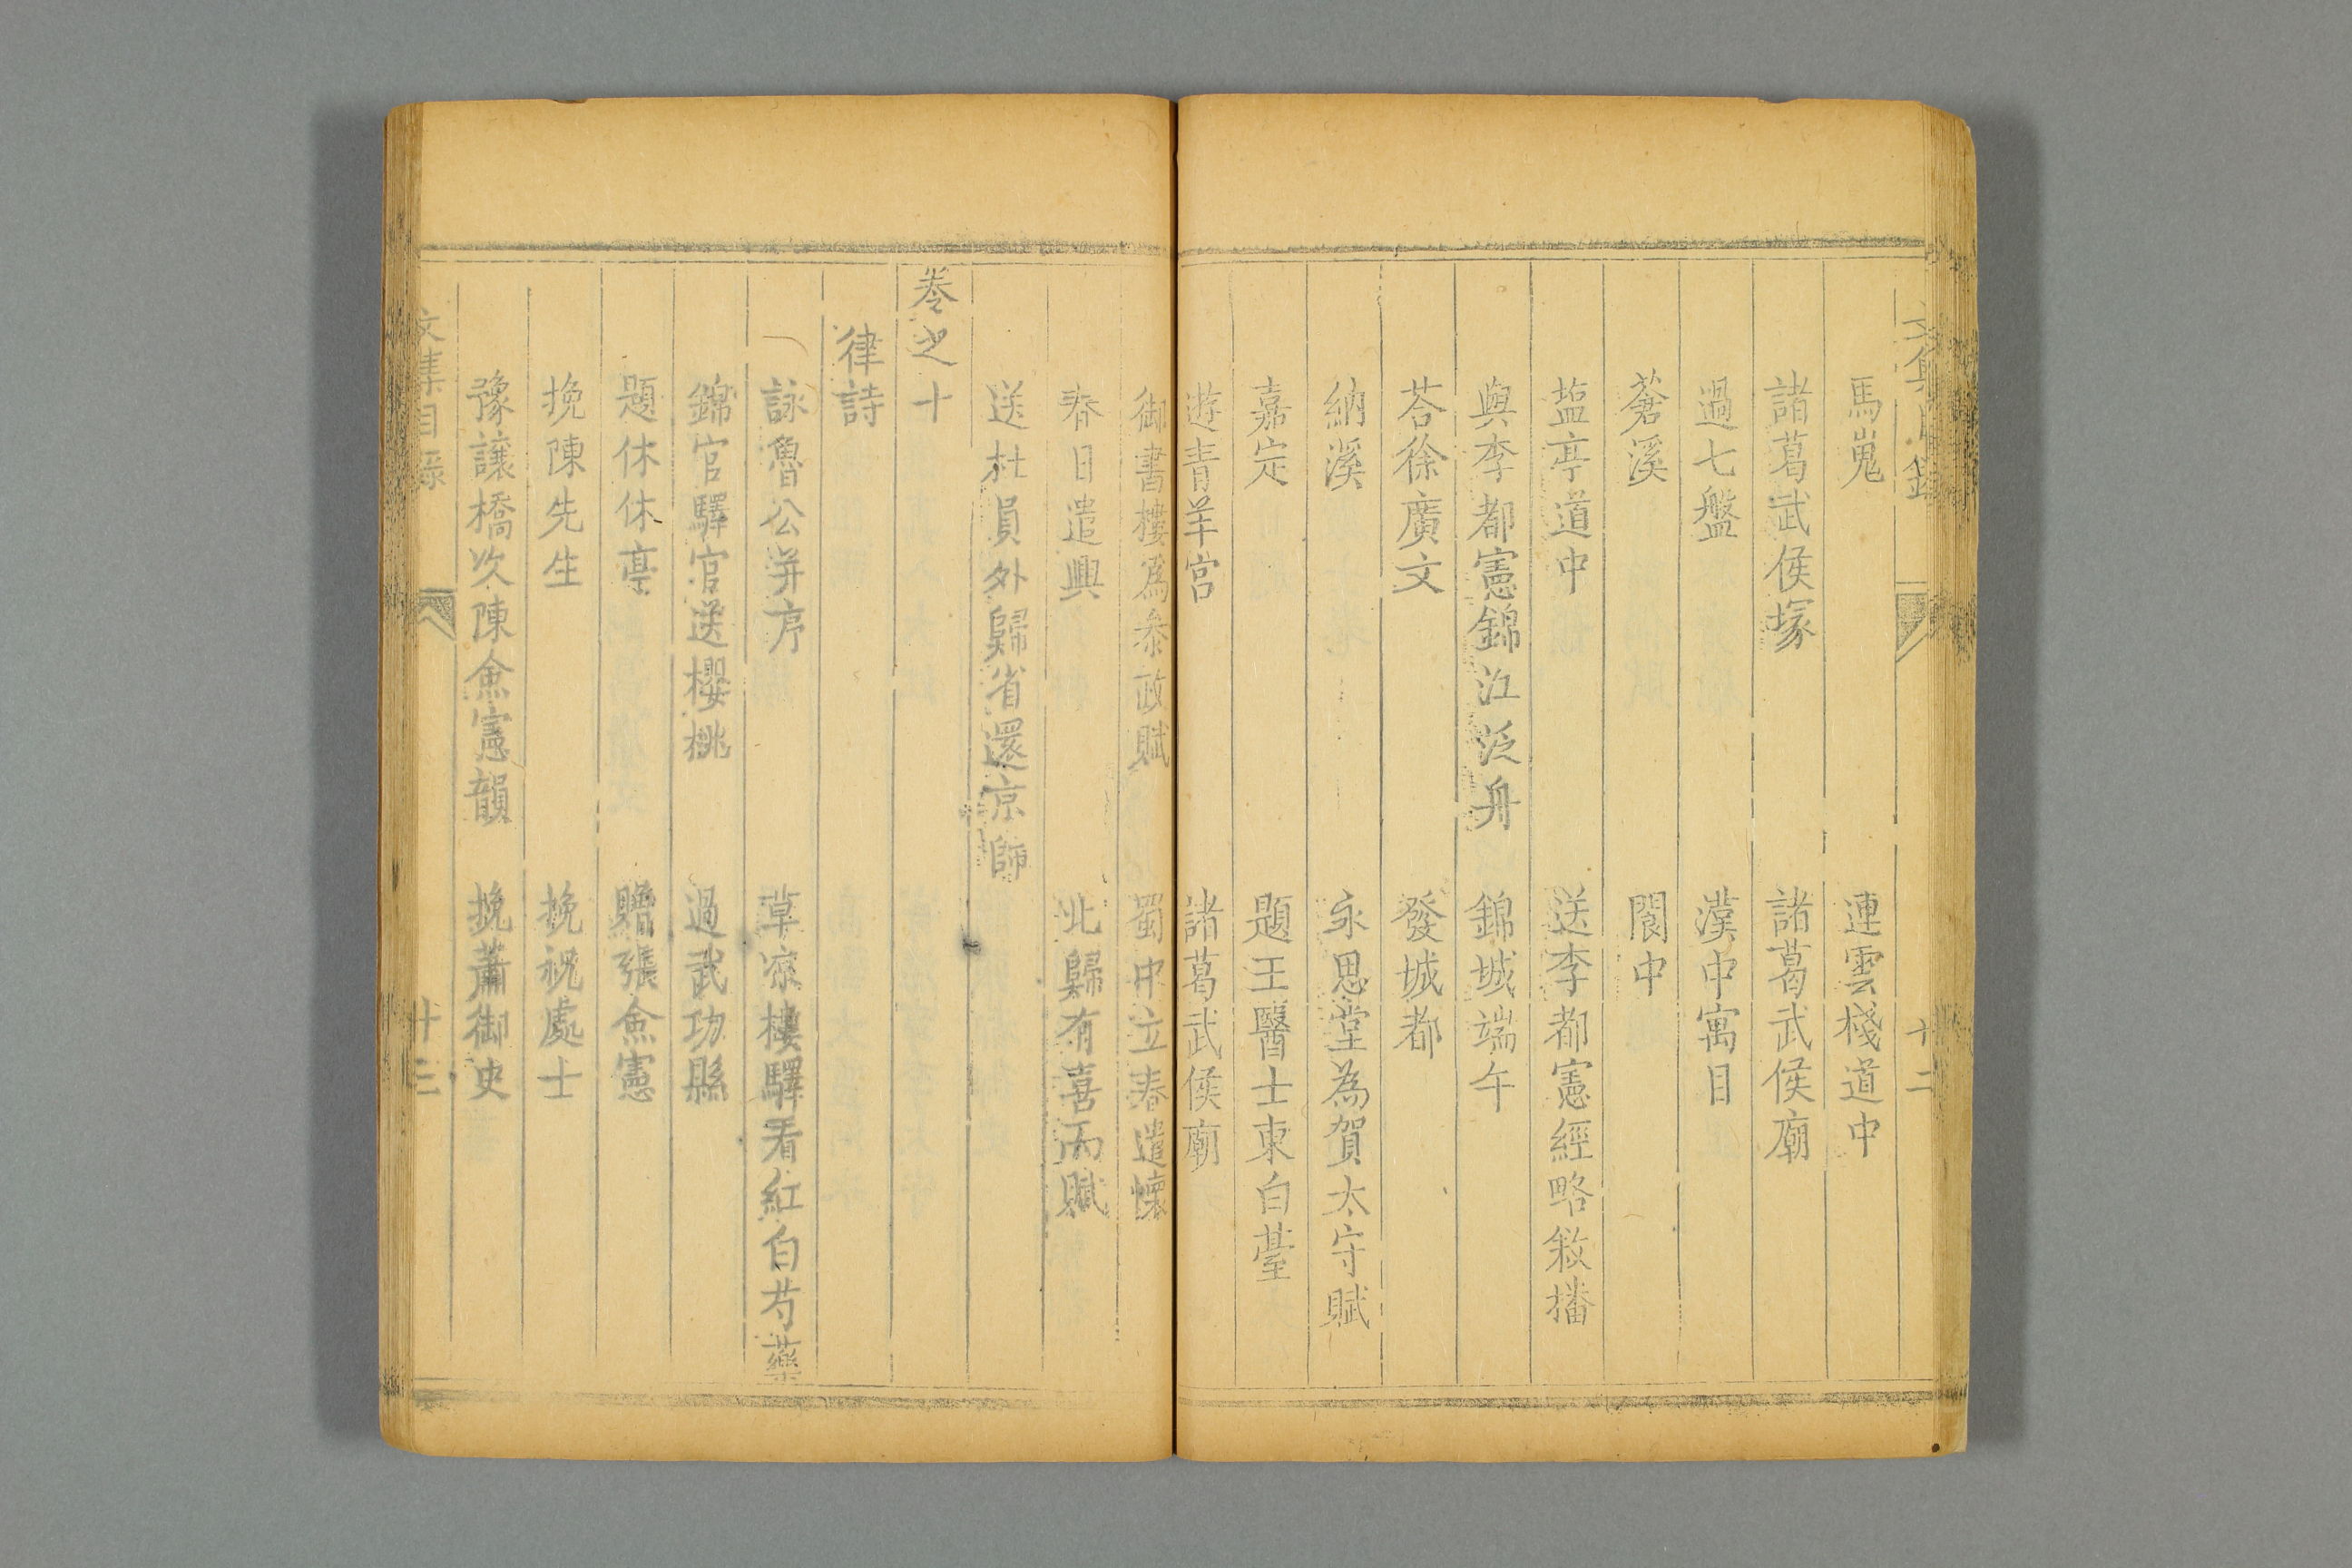 文集目錄 十二
馬嵬 連雲棧道中
諸葛武侯塚 諸葛武侯廟
過七盤 漢中寓目
蒼溪 閬中
塩亭道中 送李都憲經略敘播
與李都憲錦江泛舟 錦城端午
荅徐廣文 發城都
納溪 永思堂為賀太守賦
嘉定 題王醫士東白臺
遊青羊宮 諸葛武侯廟
御書樓爲叅政賦 蜀中立春遣懷
春日遣興 北歸有喜雨賦
送杜員外歸省還京師
卷之十
律詩
詠魯公并序 草凉樓驛看紅白芍藥
錦官驛官送櫻桃 過武功縣
題休休亭 贈張僉憲
挽陳先生 挽祝處士
豫讓橋次陳僉憲韻 挽蕭御史
文集目錄 十三